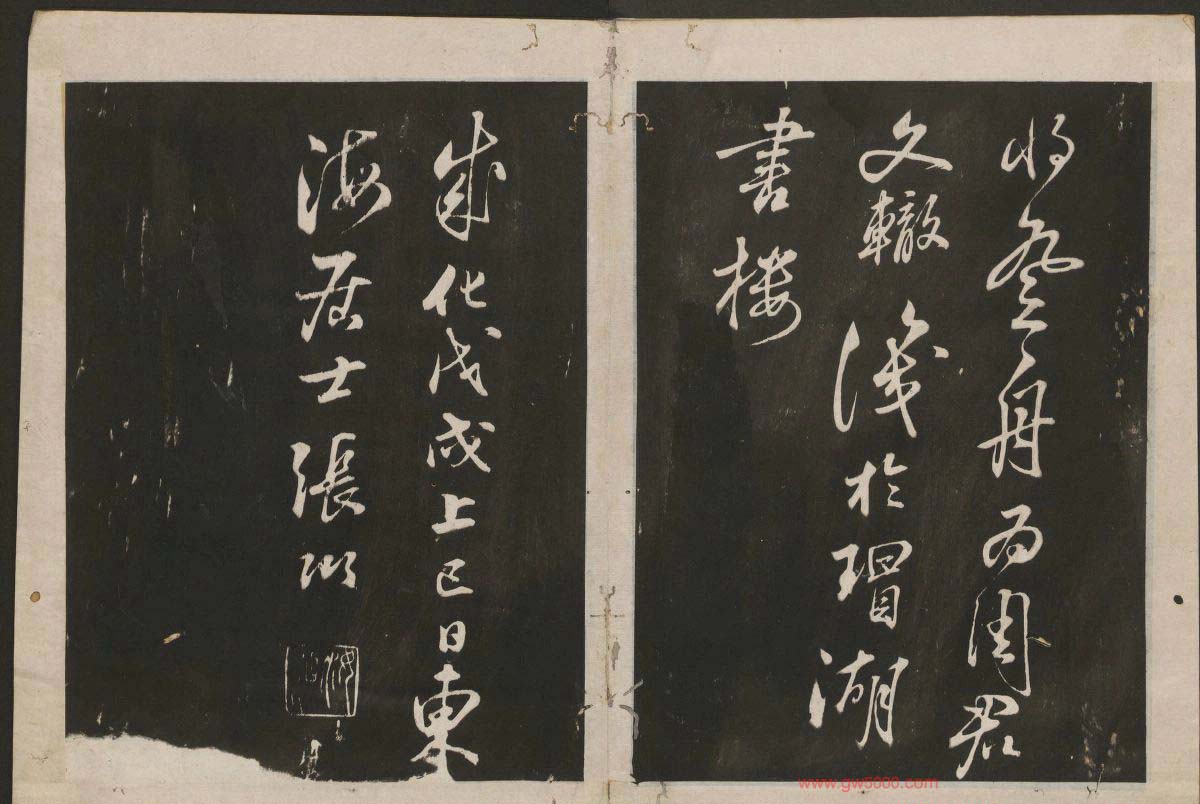 將登舟為周君
文轍識於瑁湖
書樓
成化戊戌上巳日東
海居士張弼
www.gw5000.com